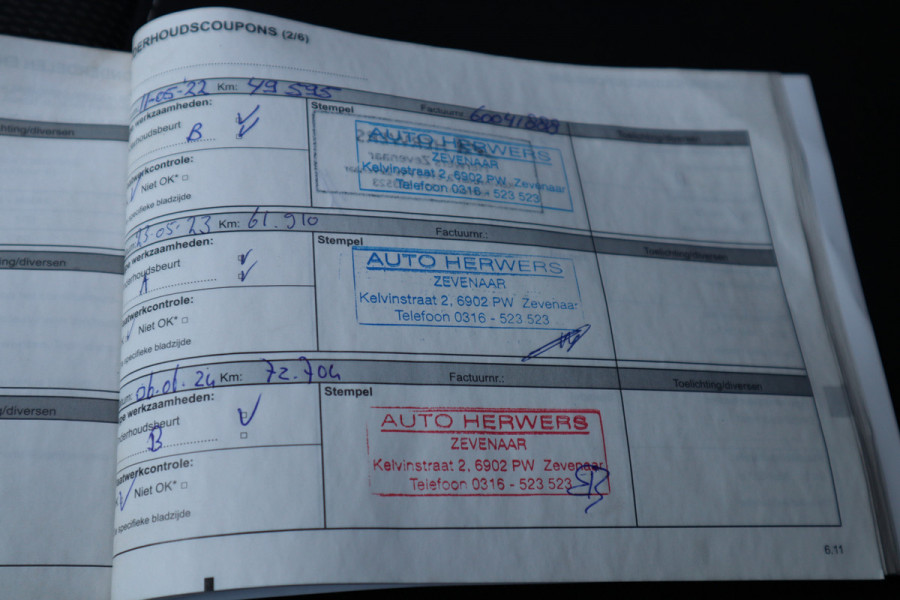 ERHOUDSCOUPONS (2/6)
11-05-'22 Km: 49 595
Factuurnr. 60041888
werkzaamheden:
Stempel
Toelichting/diversen
hting/diversen
erhoudsbeurt
B
AUTO HERWERS
ZEVENAAR
Kelvinstraat 2, 6902 PW Zevenaar
Telefoon 0316 - 523 523
werkcontrole:
Niet OK*
specifieke bladzijde
23-05-'23 Km: 61.910
Factuurnr.:
werkzaamheden:
Stempel
Toelichting/diversen
ng/diversen
houdsbeurt
A
AUTO HERWERS
ZEVENAAR
Kelvinstraat 2, 6902 PW Zevenaar
Telefoon 0316 - 523 523
atwerkcontrole:
Niet OK*
specifieke bladzijde
Km: 72.704
Factuurnr.:
ge werkzaamheden:
Stempel
Toelichting/diversen
g/diversen
nderhoudsbeurt
B
AUTO HERWERS
ZEVENAAR
Kelvinstraat 2, 6902 PW Zevenaar
Telefoon 0316 - 523 523
aatwerkcontrole:
Niet OK*
specifieke bladzijde
6.11